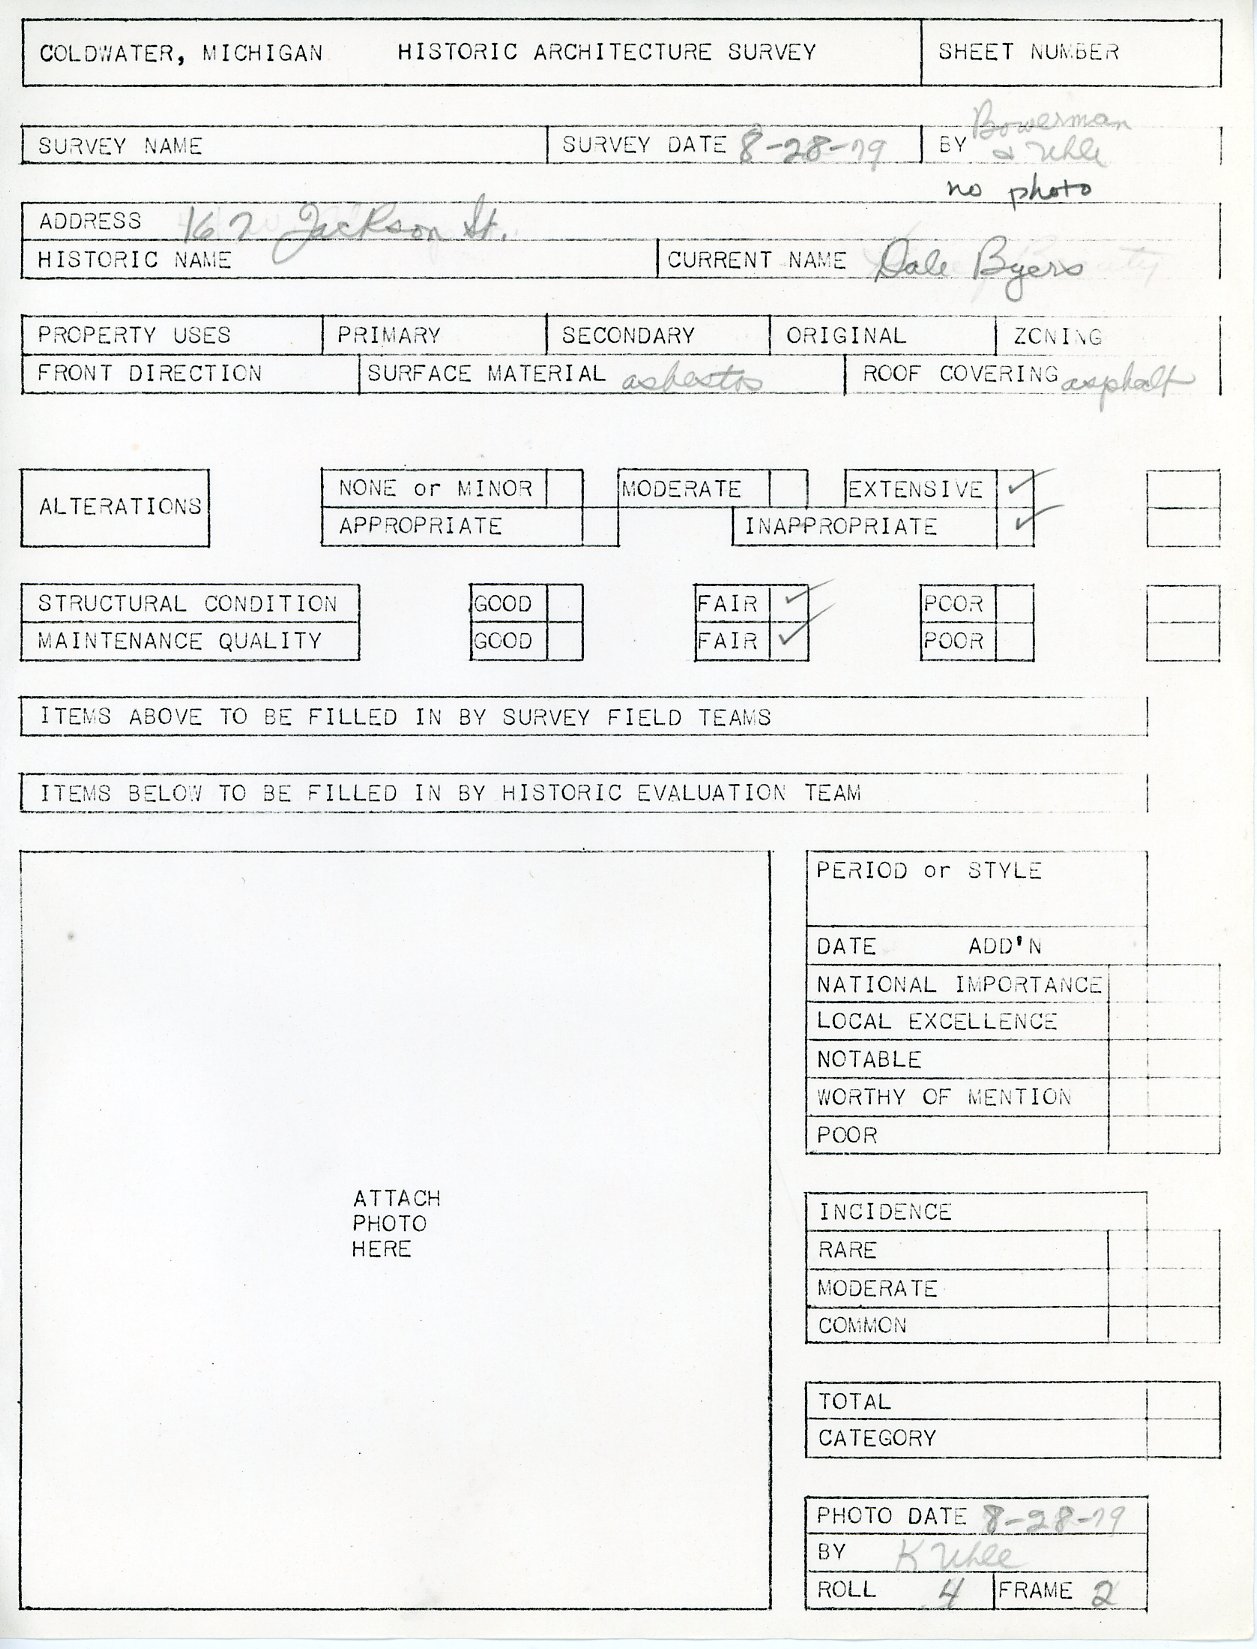 COLDWATER, MICHIGAN HISTORIC ARCHITECTURE SURVEY SHEET NUMBER
Bowerman
SURVEY NAME SURVEY DATE 8-28-79 BY & Uhle
no photo
ADDRESS 167 Jackson St.
HISTORIC NAME CURRENT NAME Dale Byers
PROPERTY USES PRIMARY SECONDARY ORIGINAL ZONING
FRONT DIRECTION SURFACE MATERIAL asbestos ROOF COVERING asphalt
ALTERATIONS NONE or MINOR MODERATE EXTENSIVE ✓
APPROPRIATE INAPPROPRIATE ✓
STRUCTURAL CONDITION GOOD FAIR ✓ POOR
MAINTENANCE QUALITY GOOD FAIR ✓ POOR
ITEMS ABOVE TO BE FILLED IN BY SURVEY FIELD TEAMS
ITEMS BELOW TO BE FILLED IN BY HISTORIC EVALUATION TEAM
ATTACH
PHOTO
HERE
PERIOD or STYLE
DATE ADD'N
NATIONAL IMPORTANCE
LOCAL EXCELLENCE
NOTABLE
WORTHY OF MENTION
POOR
INCIDENCE
RARE
MODERATE
COMMON
TOTAL
CATEGORY
PHOTO DATE 8-28-79
BY K Uhle
ROLL 4 FRAME 2